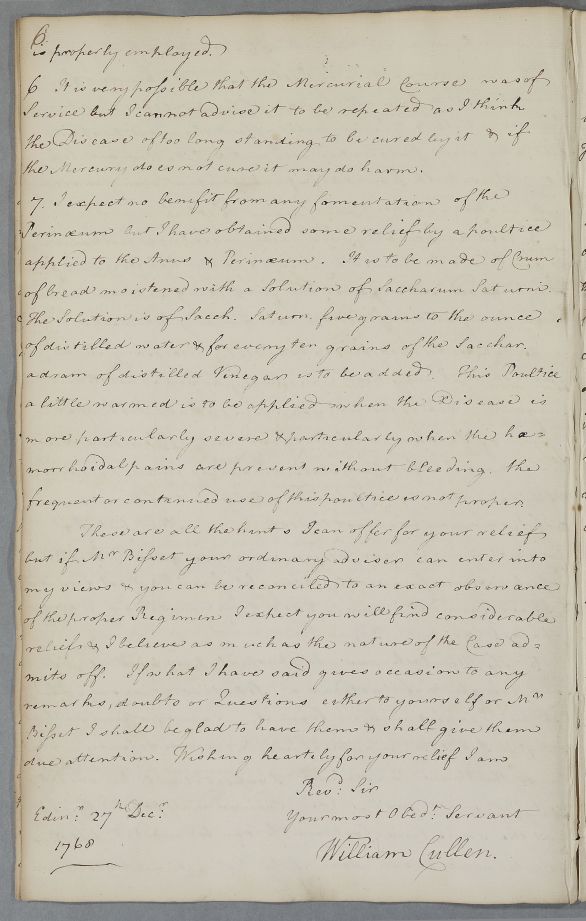 6
is properly employed.
6 It is very possible that the Mercurial Course was of
Service but I cannot advise it to be repeated as I think
the Disease of too long standing to be cured by it & if
the Mercury does not cure it may do harm.
7. I expect no benifit from any fomentation of the
Perinæum but I have obtained some relief by a poultice
applied to the Anus & Perinæum. It is to be made of Crum
of bread moistened with a Solution of Saccharum Saturni.
The Solution is of Sacch. Saturn. five grains to the ounce
of distilled water & for every ten grains of the Sacchar.
a dram of distilled Vinegar is to be added. This Poultice
a little warmed is to be applied when the Disease is
more particularly severe & particularly when the hæ=
morrhoidal pains are present without bleeding. the
frequent or continued use of this poultice is not proper.
These are all the hints I can offer for your relief
but if Mr Bisset your ordinary adviser can enter into
my views & you can be reconciled to an exact observance
of the proper Regimen I expect you will find considerable
relief & I believe as much as the nature of the Case ad=
mits off. If what I have said gives occasion to any
remarks, doubts or Questions either to yourself or Mr
Bisset I shall be glad to have them & shall give them
due attention. Wishing heartely for your relief I am
Revd. Sir
Your most Obedt. Servant
William Cullen.
Edinr. 27th Decr.
1768